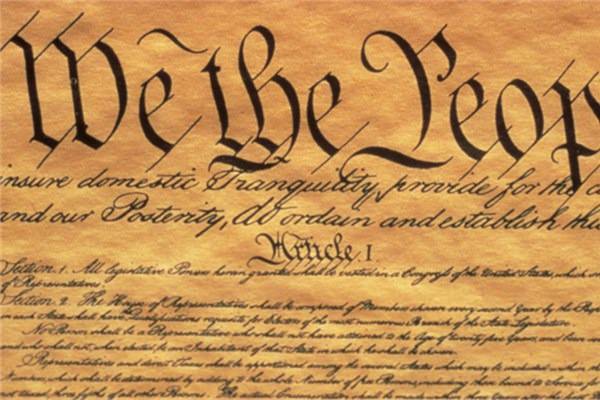 We the Peop
insure domestic Tranquility, provide for the
and our Posterity, do ordain and establish this
Article. I.
Section. 1. All legislative Powers herein granted shall be vested in a Congress of the United States, which
of Representatives.
Section. 2. The House of Representatives shall be composed of Members chosen every second Year by the Peop
in each State shall have Qualifications requisite for Electors of the most numerous Branch of the State Legislature.
No Person shall be a Representative who shall not have attained to the Age of twenty five Years, and been
and who shall not, when elected, be an Inhabitant of that State in which he shall be chosen.
Representatives and direct Taxes shall be apportioned among the several States which may be included within
Numbers, which shall be determined by adding to the whole Number of free Persons, including those bound to Service for
not taxed, three fifths of all other Persons. The actual Enumeration shall be made within three Years after the first